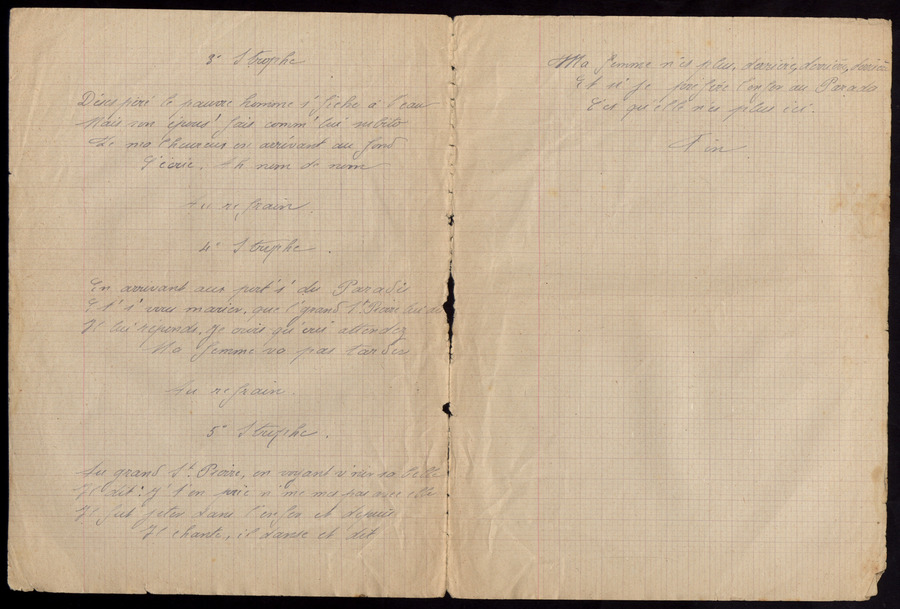 3e Strophe
Désespéré le pauvre homme s'fiche à l'eau
Mais son épous' fait comm' lui subito
Le malheureux en arrivant au fond
S'écrie. Ah nom de nom
Au refrain.
4e Strophe.
En arrivant aux port's du Paradis
Et's vous marier, que l'grand St Pierre lui dit
Il lui réponds, je crois qu'ous attendez
Ma femme va pas tarder
Au refrain.
5e Strophe.
Au grand St Pierre, en voyant v'nir sa belle
Il dit: J't'en prie n'me mes pas avec elle
Il fut jeter dans l'enfer et depuis
Il chante, il danse et dit
Ma femme n'es plus, derrière, derrière, derrière
Et si je préfère l'enfer au Parada
C'es qu'ell n'es plus ici.
Fin